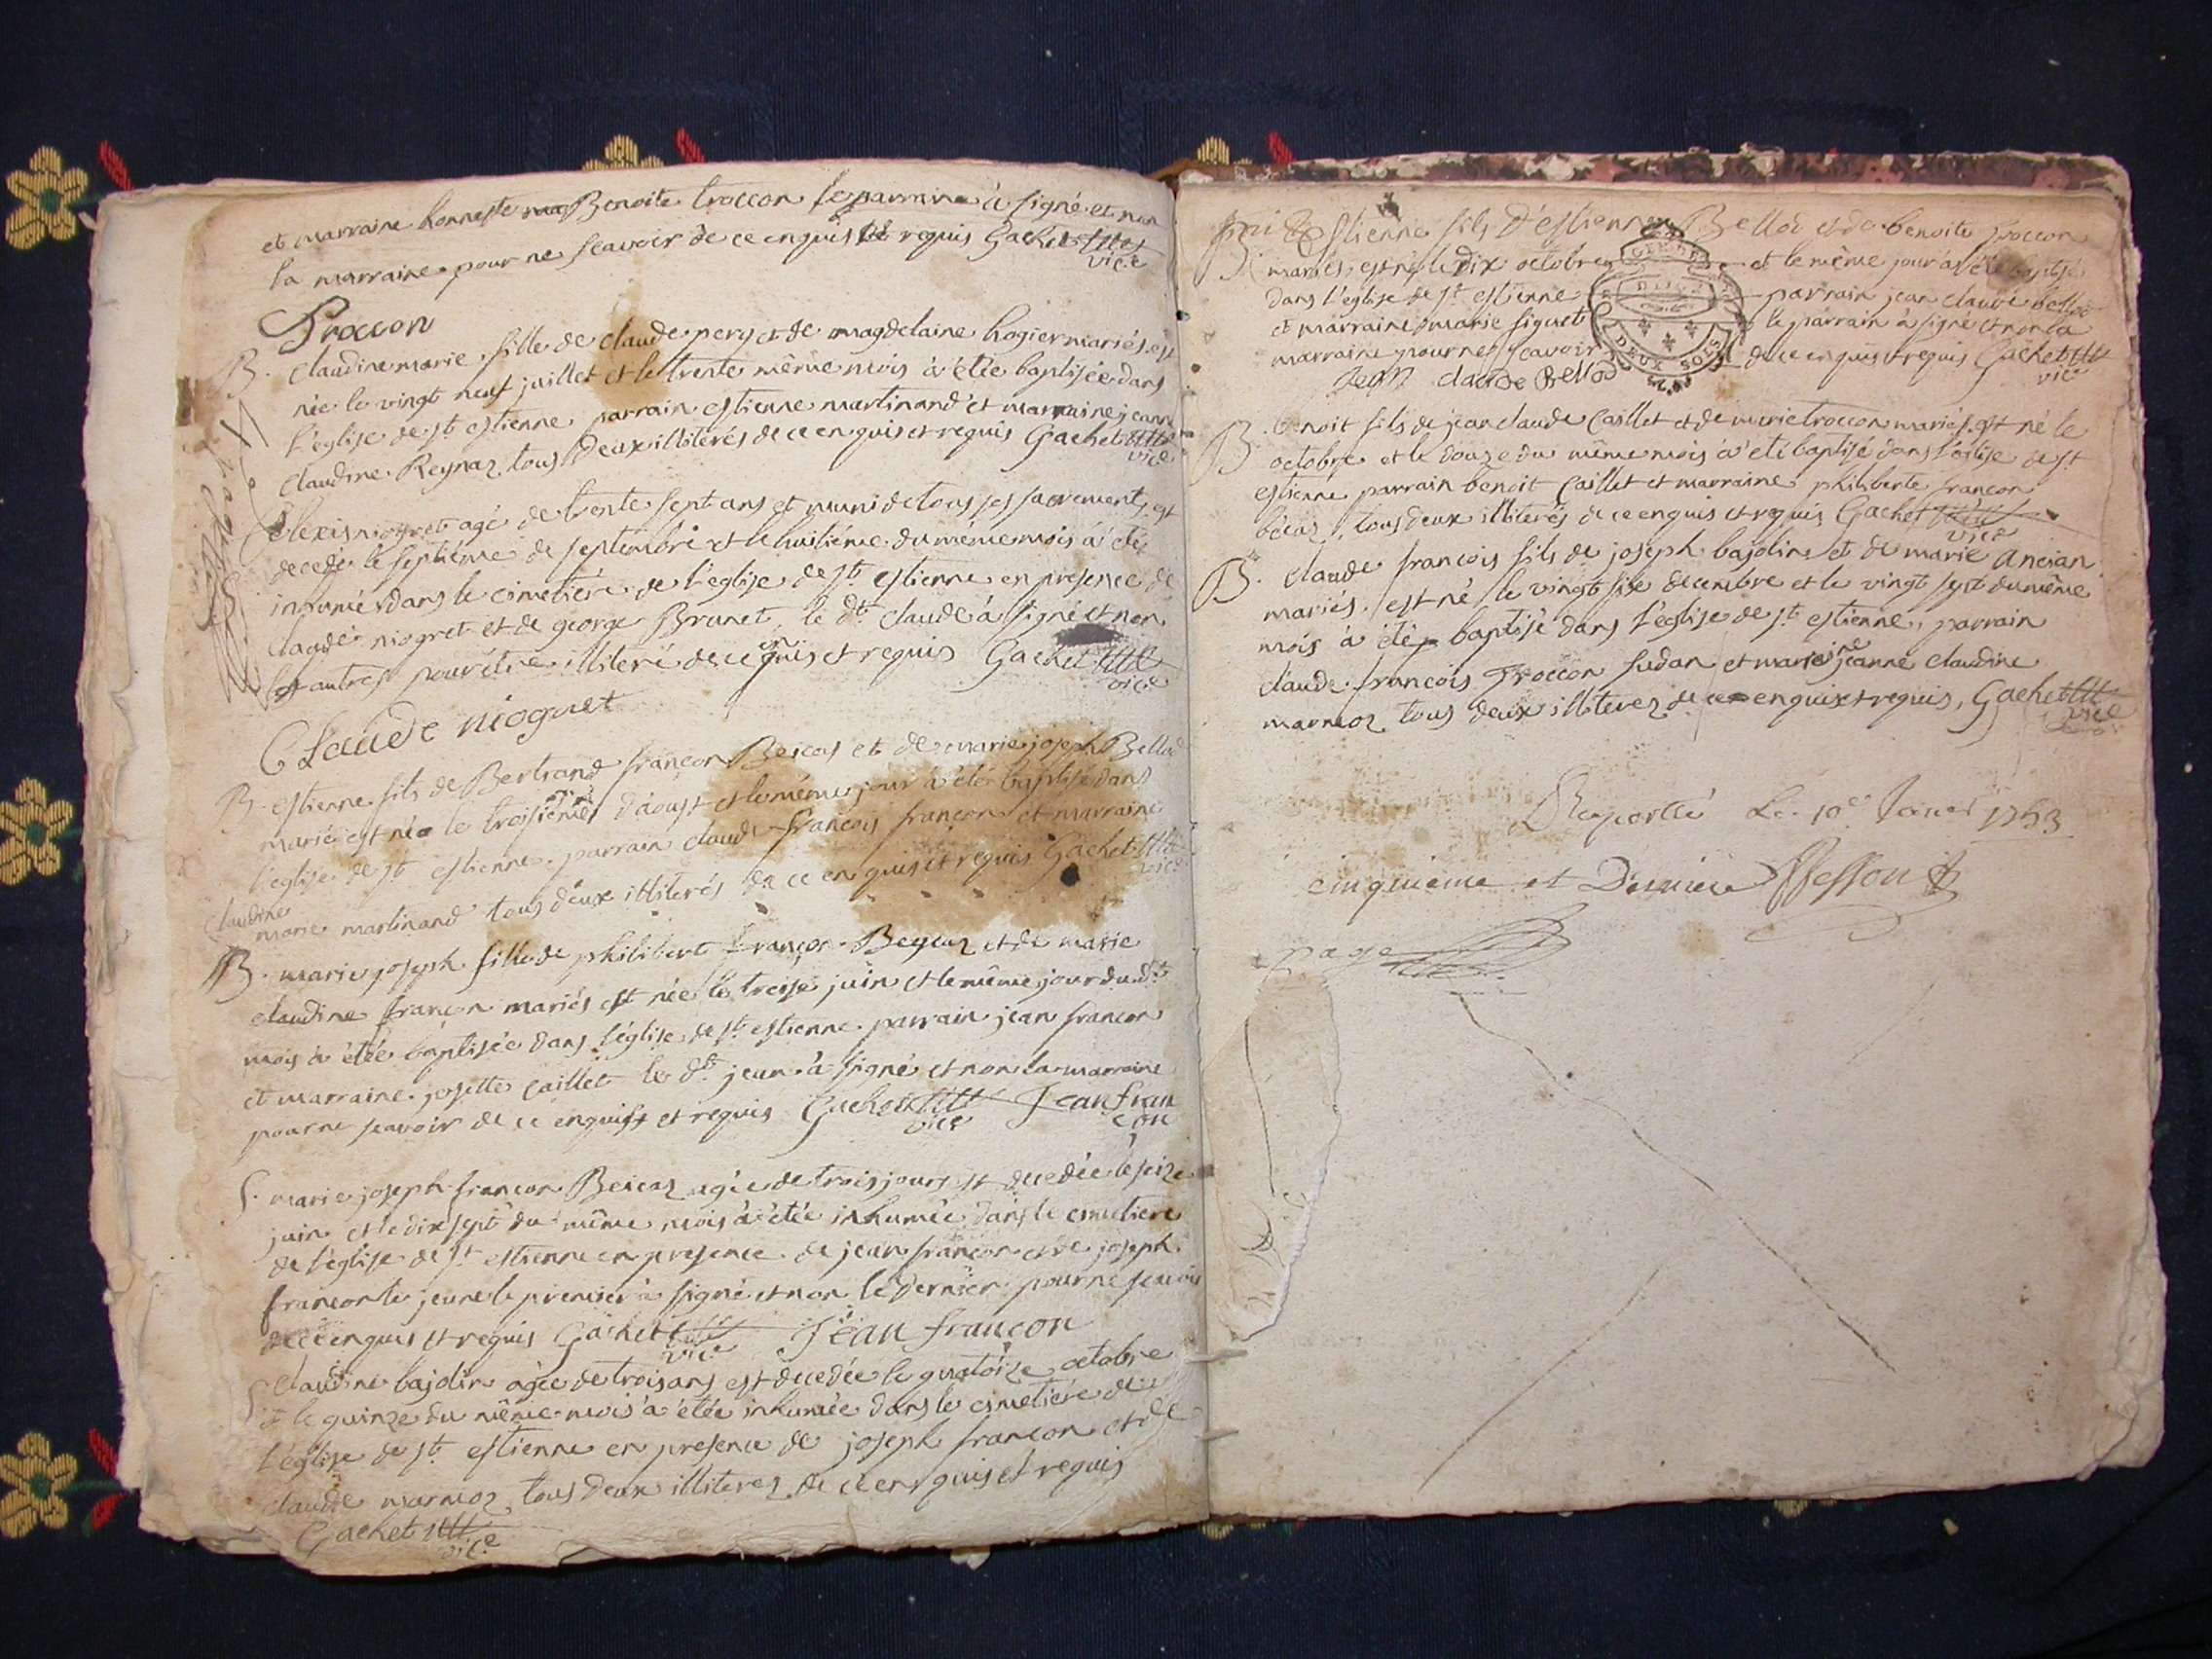 et marraine honneste Benoite troccon le parrain à signé et non
la marraine pour ne scavoir de ce enquis et requis Gachet
vice
Troccon
B. Claudine marie fille de claude pery et de magdelaine hogier mariés est
née le vingt neuf juillet et le trente même mois à étée baptisée dans
l'église de st estienne parrain estienne martinand et marraine jeanne
claudine Reynaz tous deux illiterés de ce enquis et requis Gachet
vice
alexis niogret agé de trente sept ans et muni de tous ses sacrements est
decedé le septiéme de septembre et le huitiéme du même mois à été
inhumé dans le cimetiére de l'eglise de st estienne en presence de
claude niogret et de george Brunet, le dt claude à signé et non
les autres pour être illiteré de ce enquis et requis Gachet
vice
Claude niogret
B. estienne fils de Bertrand françon Beicas et de marie joseph Bellod
marié est né le troisiéme d'aoust et le même jour à été baptisé dans
l'eglise de st estienne parrain claude françois françon et marraine
claudine
marie martinand tous deux illiterés de ce enquis et requis Gachet
vice
B. marie joseph fille de philibert françon Beycaz et de marie
claudine françon mariés est née le treize juin et le même jour du dt
mois à étée baptisée dans l'église de st estienne parrain jean françon
et marraine josette caillet le dt jean à signé et non la marraine
pour ne scavoir de ce enquist et requis Gachet Jean fran
vice çon
S. marie joseph françon Beicaz agée de trois jours est decedée le seize
juin et le dix sept du même mois à étée inhumée dans le cimetiere
de l'église de st estienne en presence de jean françon et de joseph
françon le jeune le premier à signé et non le dernier pour ne scavoir
de ce enquis et requis Gachet Jean françon
vice
S. claudine bajolin agée de trois ans est decedée le quatorze octobre
et le quinze du même mois à étée inhumée dans le cimetiére de
l'église de st estienne en presence de joseph françon et de
claude marmoz tous deux illiterez de ce enquis et requis
Gachet
vice
B. Estienne fils d'estienne Bellod et de benoite troccon
mariés, est né le dix octobre et le même jour à été baptisé
dans l'eglise de st estienne parrain jean claude bellod
et marraine marie siguet le parrain à signé et non la
marraine pour ne scavoir de ce enquis et requis Gachet
vice
DEUX SOLS
jean claude Bellod
B. benoit fils de jean claude Caillet et de marie troccon mariés est né le
octobre et le douze du même mois à été baptisé dans l'église de st
estienne parrain benoit Caillet et marraine philiberte françon
béicaz, tous deux illiterés de ce enquis et requis Gachet
vice
B. claude françois fils de joseph bajolin et de marie ancian
mariés, est né le vingt six decembre et le vingt sept du même
mois à été baptisé dans l'église de st estienne, parrain
claude françois Troccon sudan et marraine jeanne claudine
marmoz tous deux illiterez de ce enquis et requis, Gachet
vice
Raporté Le 10e Janer 1753
cinquieme et Derniere
page